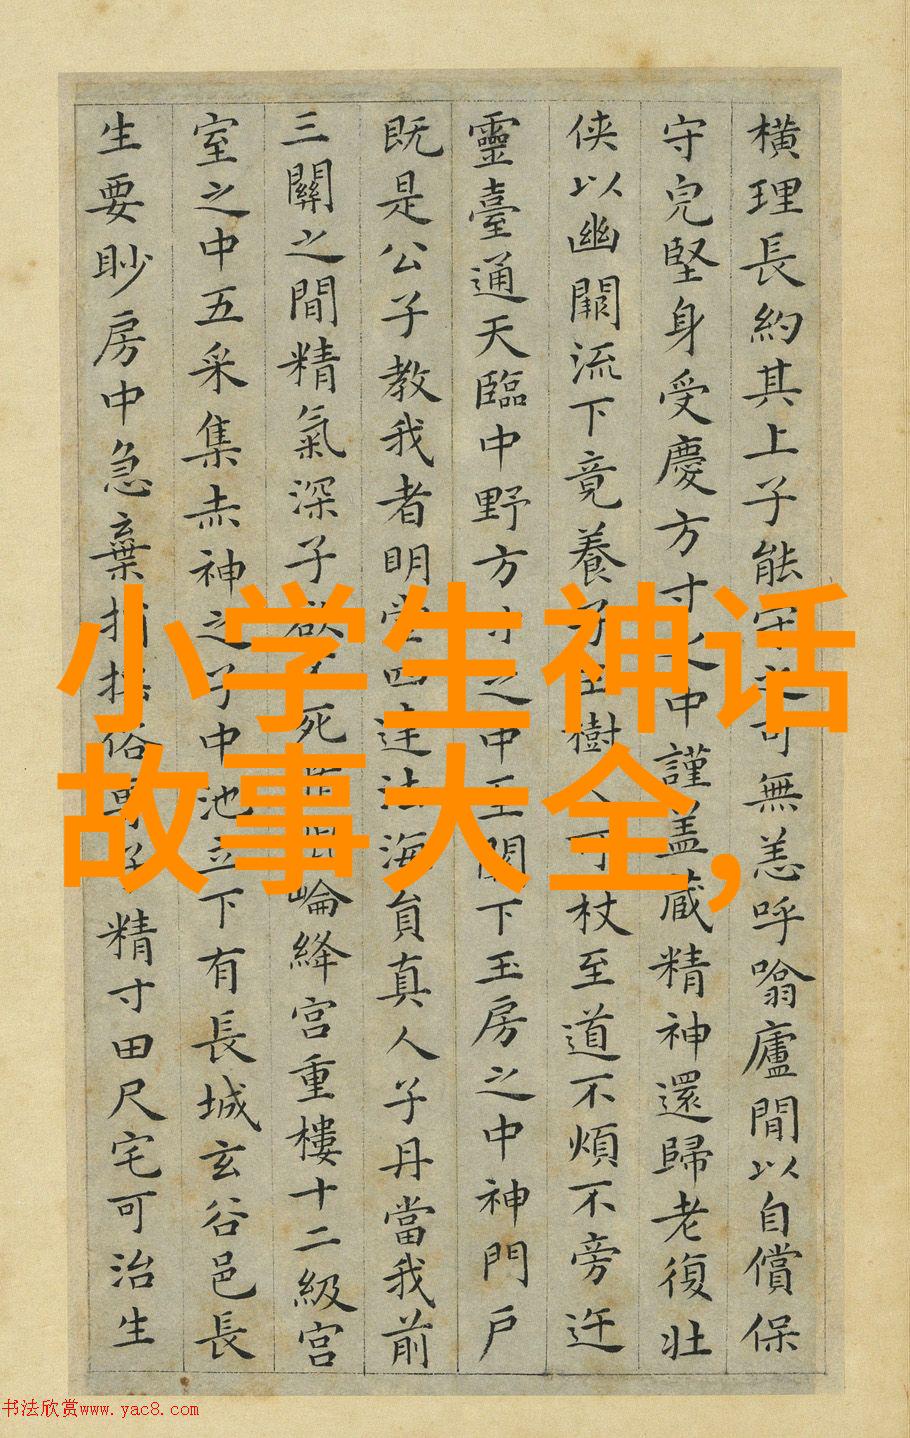 橫理長約其上子能守之可無恙呼噏廬間以自償保
守皃堅身受慶方寸之中謹盖藏精神還歸老復壯
侠以幽闕流下竟養子玉樹可杖至道不煩不旁迕
靈臺通天臨中野方寸之中至關下玉房之中神門戶
既是公子教我者明堂四達法海員真人子丹當我前
三關之間精氣深子欲不死崘絳宮重樓十二級宮
室之中五采集赤神之子中池立下有長城玄谷邑長
生要眇房中急棄捐俗專子精寸田尺宅可治生
小学生神话
故事大全,
书法欣赏www.yac8.com